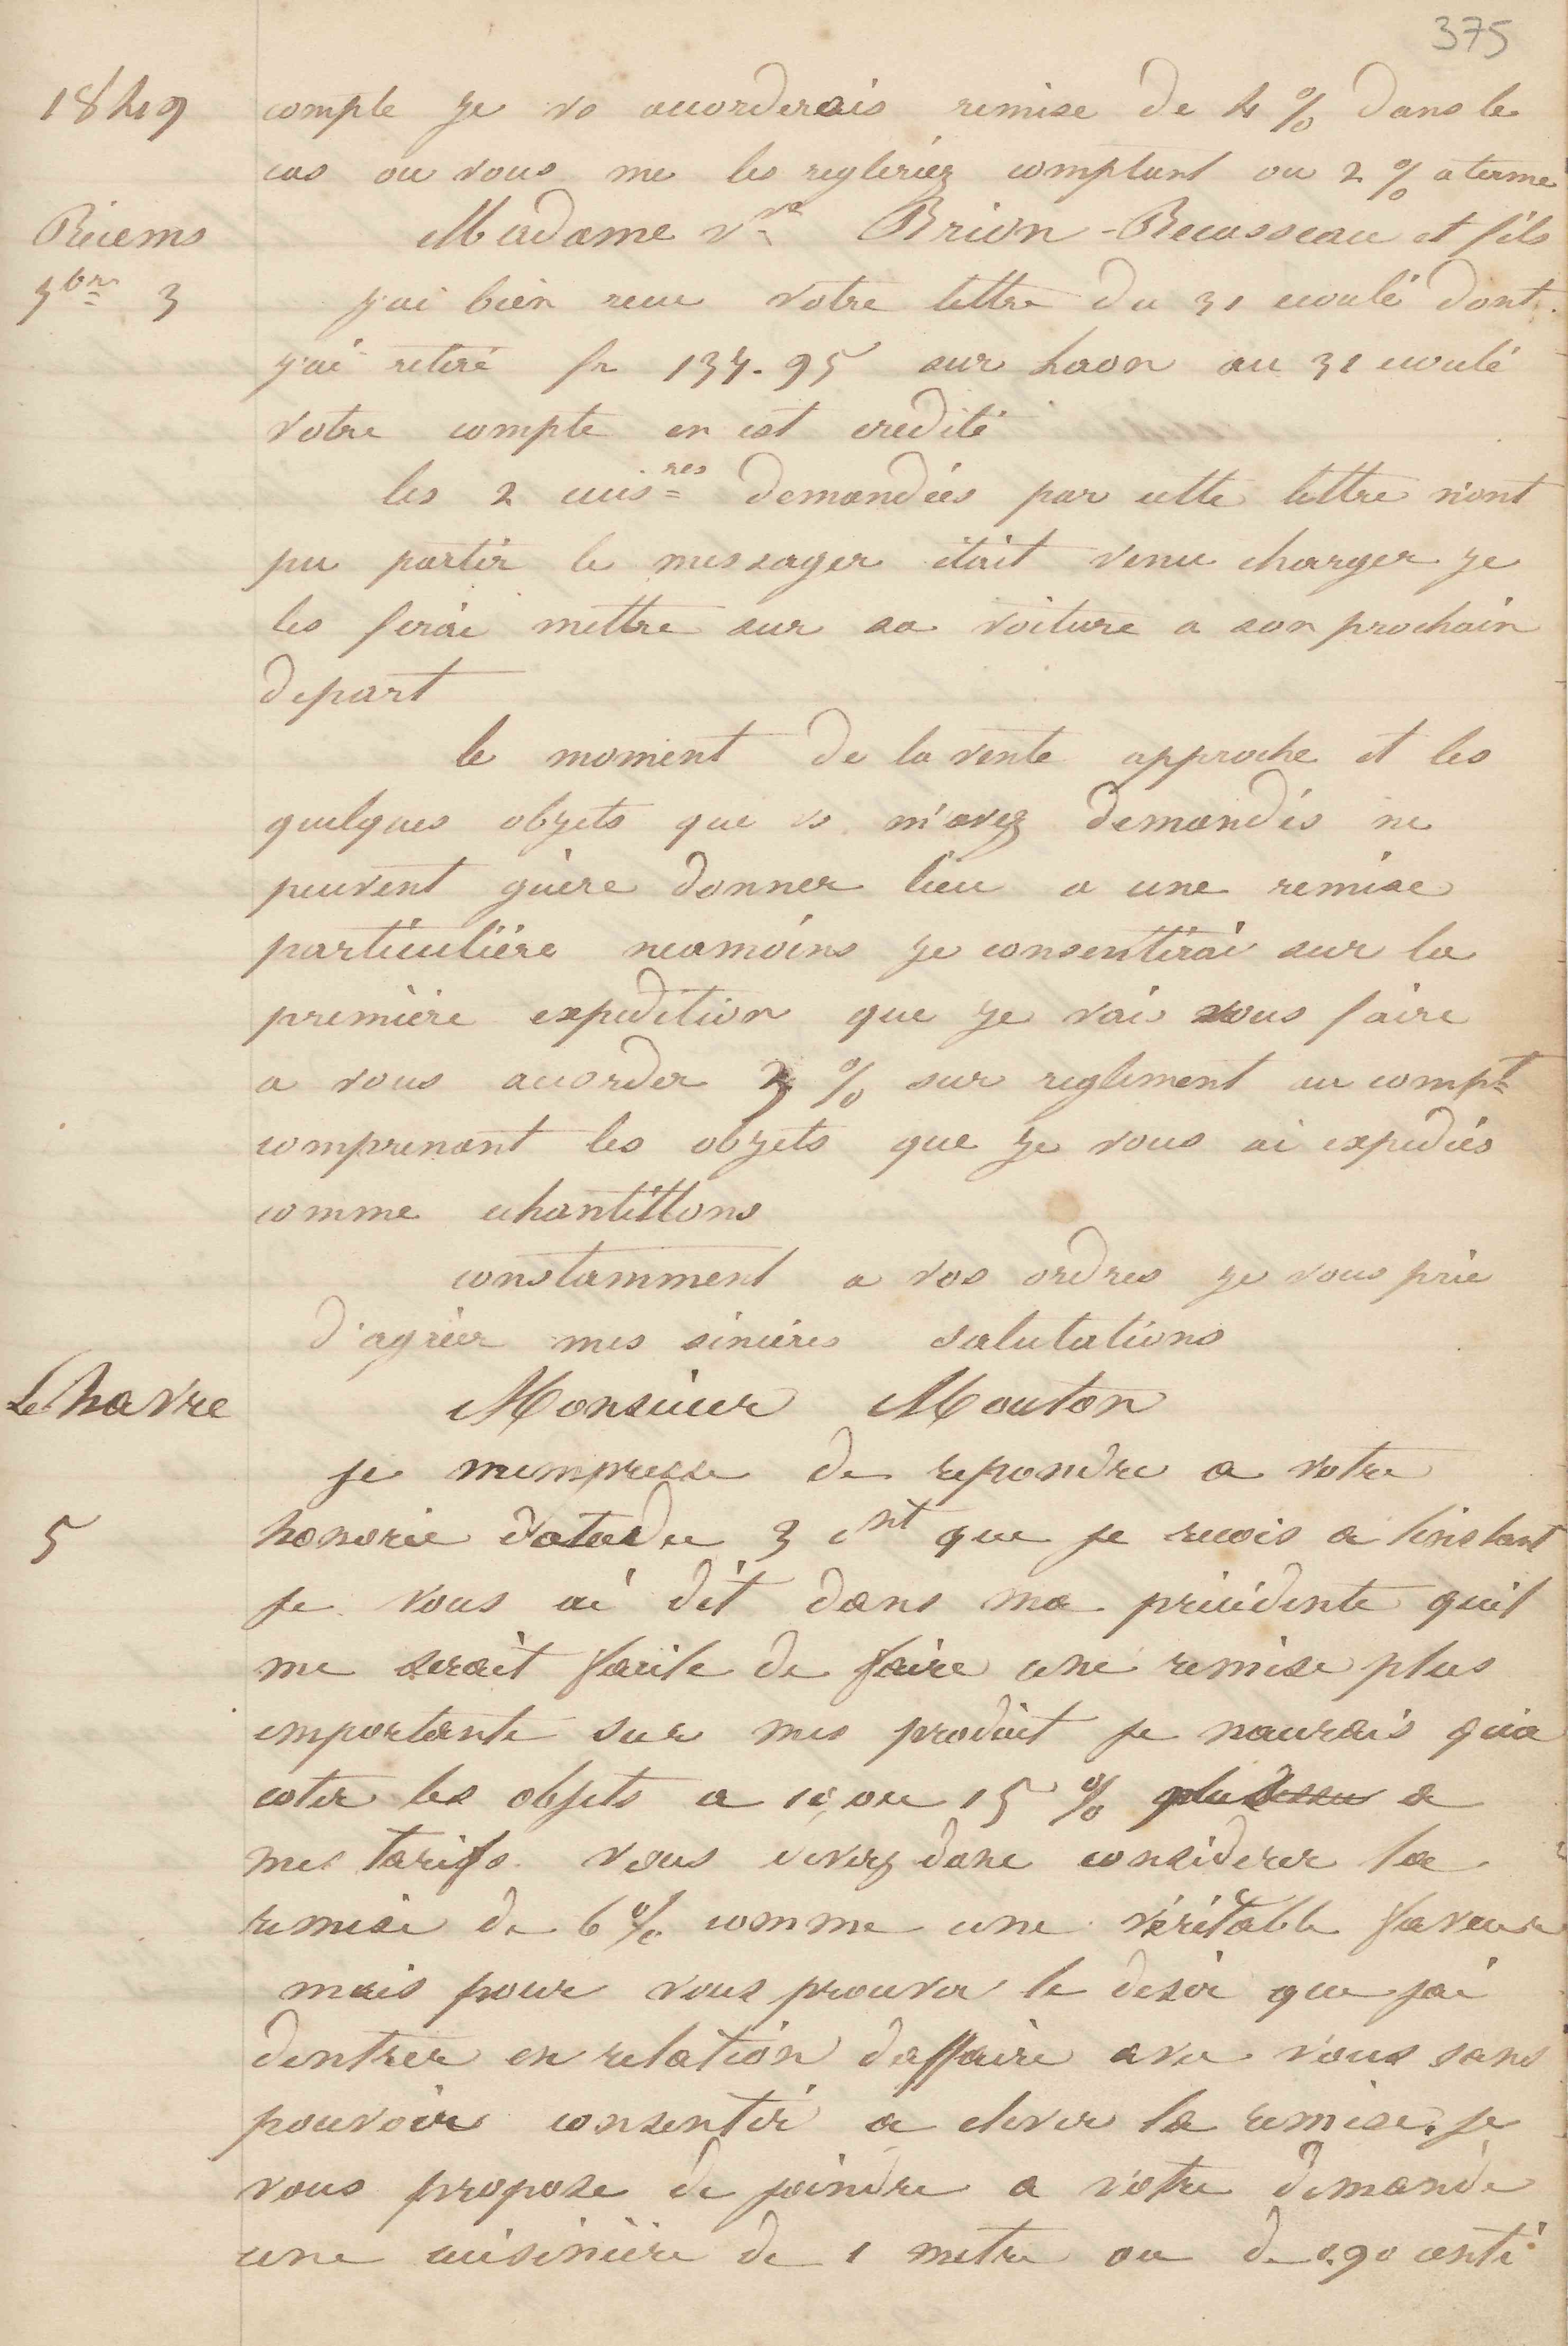 375
1849
compte je vs accorderais remise de 4 % dans le
cas ou vous me les regleriez comptant ou 2 % a terme
Rièems
Madame Vve Brion-Recasseau et fils
7bre 3
j'ai bien recu votre lettre du 31 ecoulé dont
j'ai retiré fr 137.95 sur Laon au 31 ecoulé
votre compte en est credité
les 2 cuisres demandées par cette lettre n'ont
pu partir le messager était venu charger je
les ferai mettre sur sa voiture a son prochain
depart
le moment de la vente approche et les
quelques objets que vs m'avez demandés ne
peuvent guère donner lieu a une remise
particulière neamoins je consentirai sur la
première expedition que je vais vous faire
a vous accorder 3 % sur reglement au compt
comprenant les objets que je vous ai expediés
comme echantillons
constamment a vos ordres je vous prie
d'agréer mes sincères salutations
Le havre
Monsieur Mouton
je mempresse de repondre a votre
5
honorée datée du 3 cnt que je recois a linstant
je vous ai dit dans ma précédente quil
me serait facile de faire une remise plus
importante sur mes produit je naurais qua
coter les objets a 10 ou 15 % plus dessu a
mes tarifs vous devez donc considerer la
remise de 6 % comme une véritable faveur
mais pour vous prouver le desir que jai
dentrer en relation daffaire avec vous sans
pouvoir consentir a elever la remise. je
vous propose de joindre a votre demande
une cuisinière de 1 metre ou de 0.90 centi